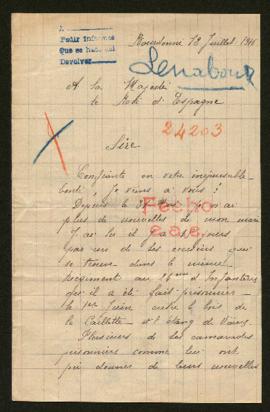 A
Pedir informes
Que se ha
Devolver
18 Juillet 1916
Lenabour
A Sa Majesté
le Roi d'Espagne
24203
Sire
Confiante en votre
bonté, je viens à vous!
Depuis le je n'ai
plus de nouvelles de mon mari
J'ai su il y a
par un de ses cousins qui
se trouve dans le même
Régiment au d'Infanterie
qu'il a été fait prisonnier
le 1er Juin entre le bois de
la Caillette et l'étang de Vaux
Plusieurs de ses camarades
prisonniers comme lui ont
pu donner de leurs nouvelles
Fecho